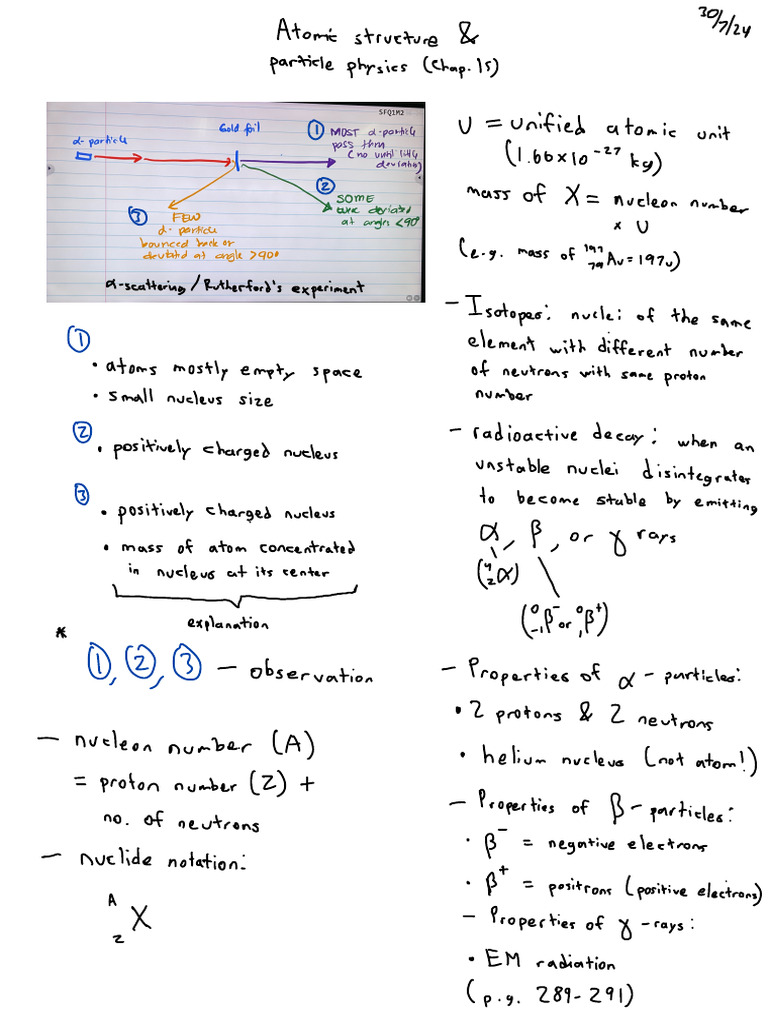 30/7/24
Atomic structure &
particle physics (Chap. 15)
SFQ1M2
α-particle
Gold foil
① MOST α-particle
pass thru
(no until little
deviation)
② SOME
were deviated
at angles <90°
③ FEW
α-particle
bounced back or
deviated at angle >90°
α-scattering / Rutherford's experiment
①
• atoms mostly empty space
• small nucleus size
②
• positively charged nucleus
③
• positively charged nucleus
• mass of atom concentrated
in nucleus at its center
explanation
*
①, ②, ③ — observation
— nucleon number (A)
= proton number (Z) +
no. of neutrons
— nuclide notation:
A
X
Z
U = unified atomic unit
(1.66×10⁻²⁷ kg)
mass of X = nucleon number
× U
(e.g. mass of ¹⁹⁷₇₉Au = 197u)
— Isotopes: nuclei of the same
element with different number
of neutrons with same proton
number
— radioactive decay: when an
unstable nuclei disintegrates
to become stable by emitting
α, β, or γ rays
(⁴₂α)
(⁰₋₁β⁻ or ⁰₁β⁺)
— Properties of α-particles:
• 2 protons & 2 neutrons
• helium nucleus (not atom!)
— Properties of β-particles:
• β⁻ = negative electrons
• β⁺ = positrons (positive electrons)
— Properties of γ-rays:
• EM radiation
(p.g. 289-291)